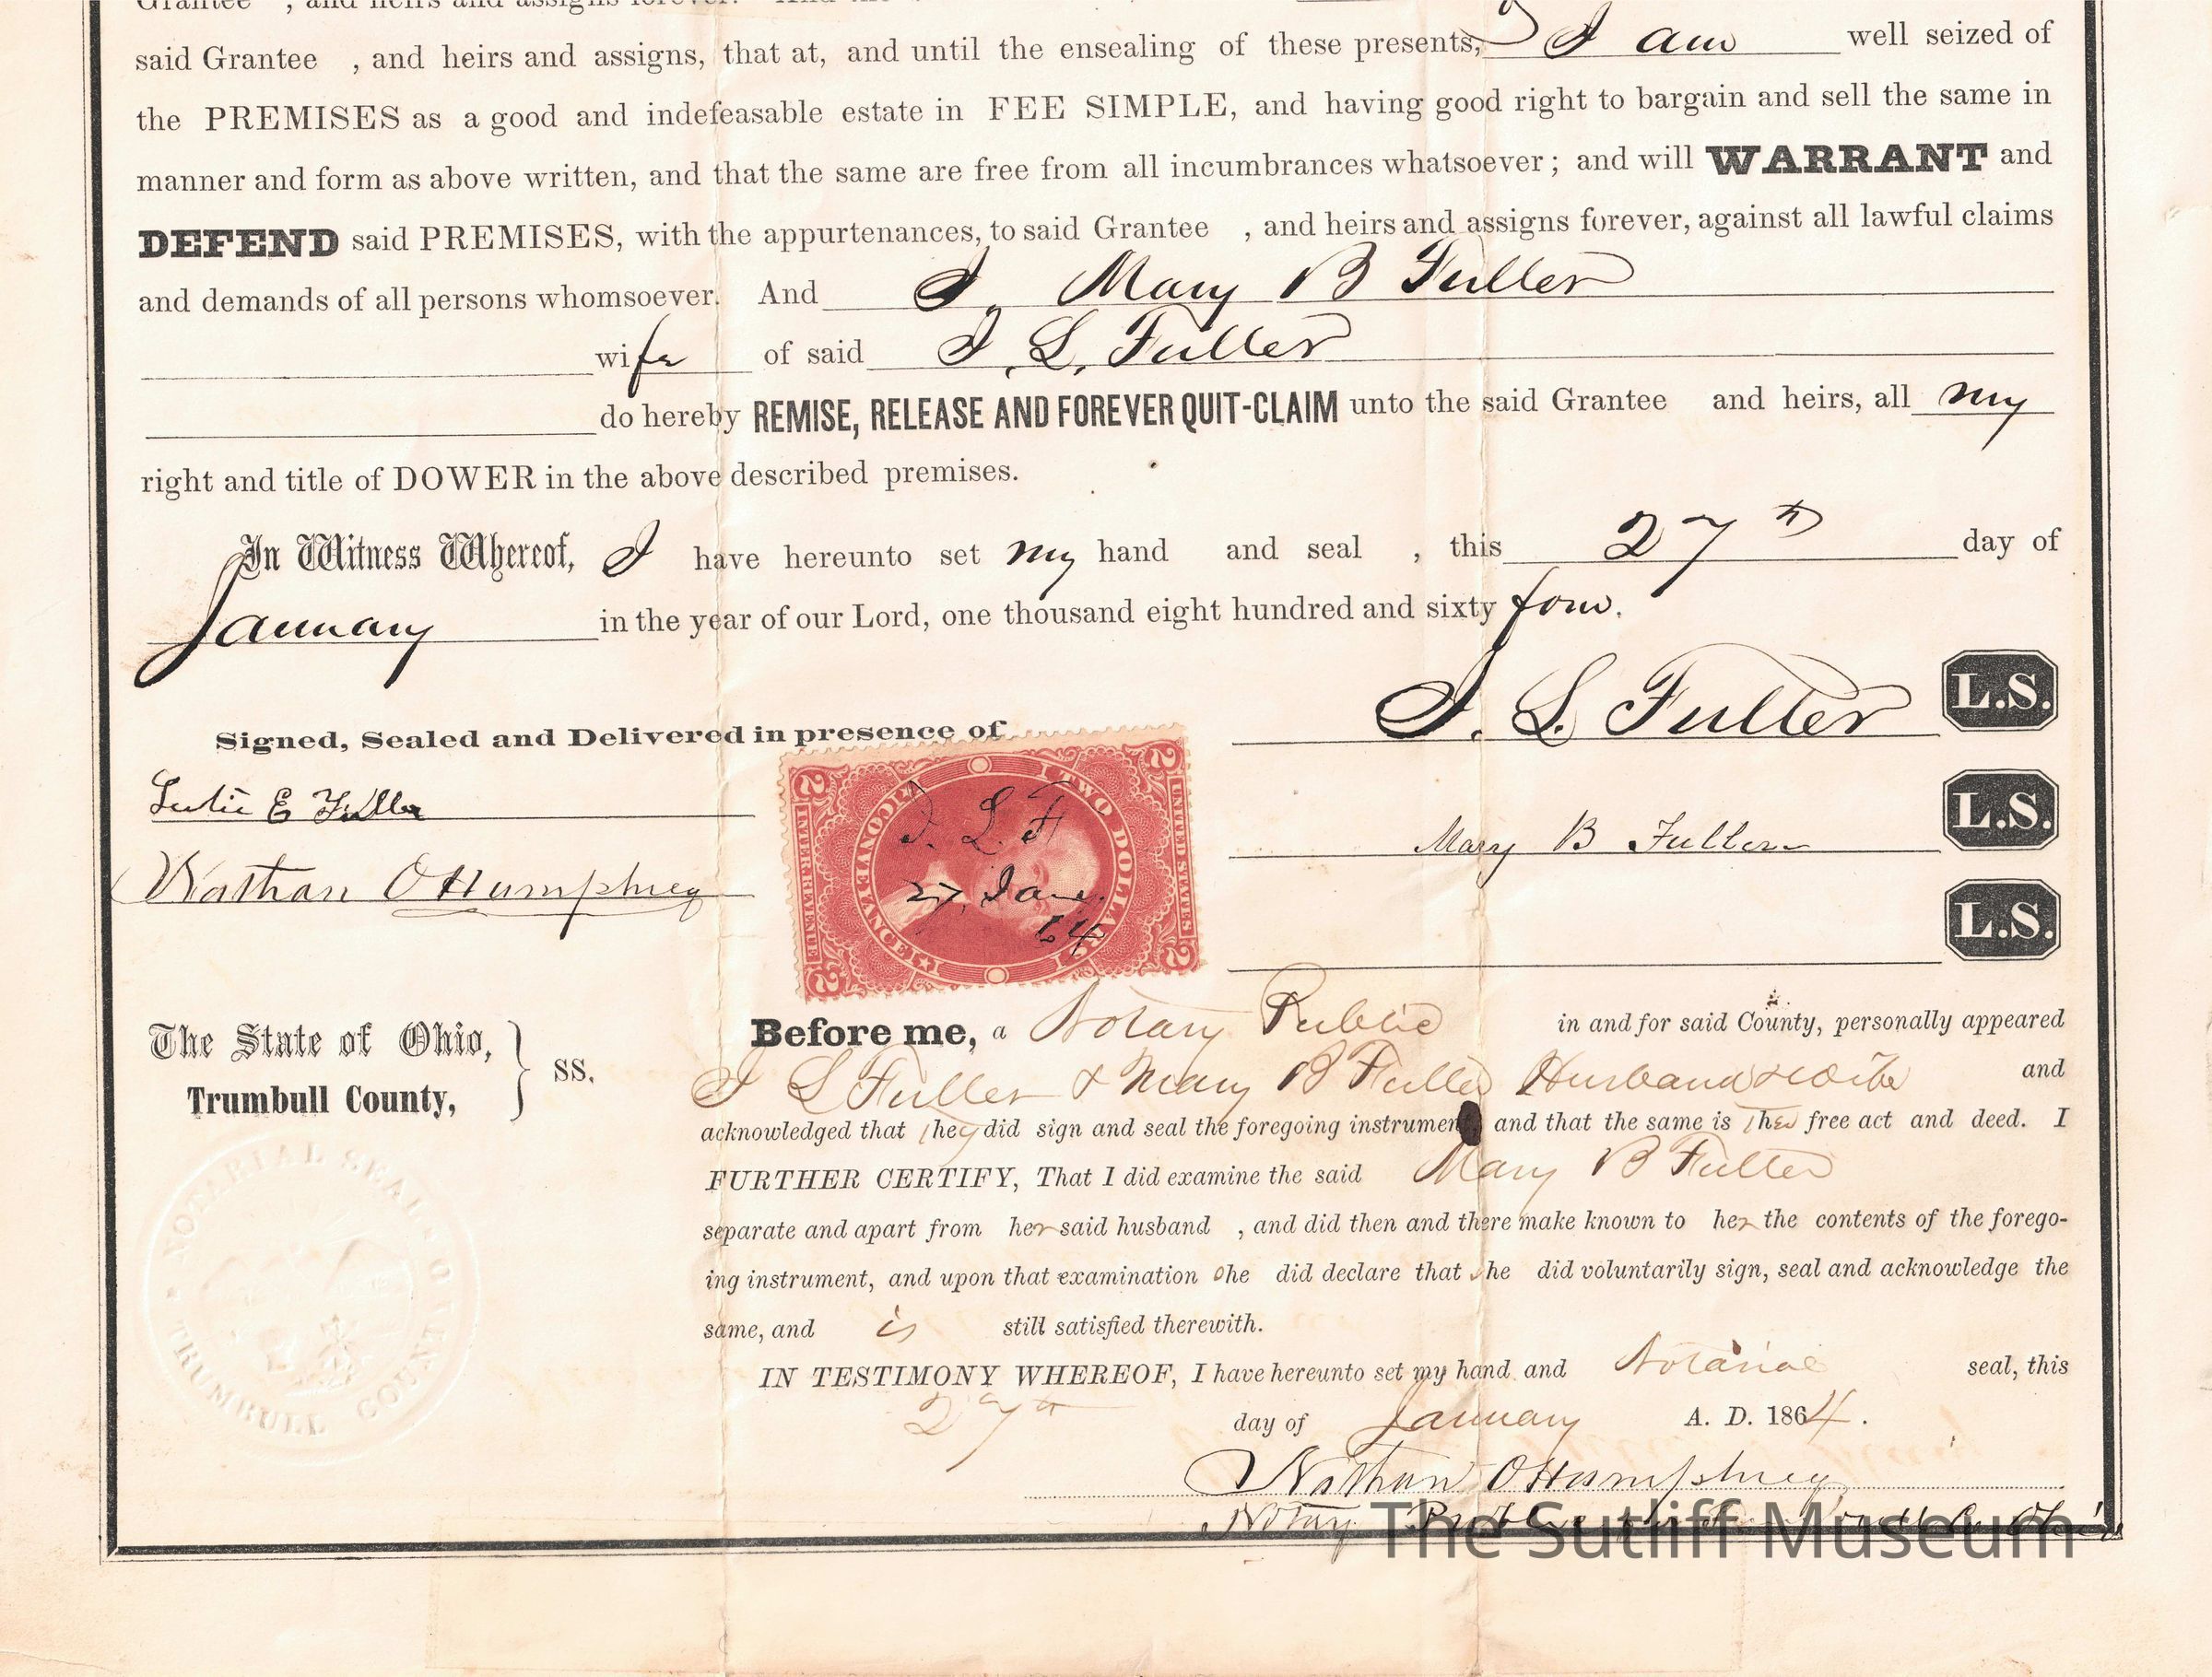 Grantee , and heirs and assigns forever. And
said Grantee , and heirs and assigns, that at, and until the ensealing of these presents, I am well seized of
the PREMISES as a good and indefeasable estate in FEE SIMPLE, and having good right to bargain and sell the same in
manner and form as above written, and that the same are free from all incumbrances whatsoever; and will WARRANT and
DEFEND said PREMISES, with the appurtenances, to said Grantee , and heirs and assigns forever, against all lawful claims
and demands of all persons whomsoever. And I, Mary B Fuller
wife of said I. L. Fuller
do hereby REMISE, RELEASE AND FOREVER QUIT-CLAIM unto the said Grantee and heirs, all my
right and title of DOWER in the above described premises.
In Witness Whereof, I have hereunto set my hand and seal , this 27th day of
January in the year of our Lord, one thousand eight hundred and sixty four.
I. L. Fuller L.S.
Signed, Sealed and Delivered in presence of
E Fuller
Mary B Fuller L.S.
Nathan O Humphrey
L.S.
UNITED STATES
TWO DOLLARS
CONVEYANCE
INTER. REVENUE
2 2 2 2
I. L. F
27, Jan.
64
The State of Ohio,
Trumbull County, } SS.
Before me, a Notary Public in and for said County, personally appeared
I L Fuller & Mary B Fuller Husband & wife and
acknowledged that they did sign and seal the foregoing instrument, and that the same is their free act and deed. I
FURTHER CERTIFY, That I did examine the said Mary B Fuller
separate and apart from her said husband , and did then and there make known to her the contents of the forego-
ing instrument, and upon that examination she did declare that she did voluntarily sign, seal and acknowledge the
same, and is still satisfied therewith.
IN TESTIMONY WHEREOF, I have hereunto set my hand and Notarial seal, this
27th day of January A. D. 1864.
Nathan O Humphrey
Notary Public
NOTARIAL SEAL
TRUMBULL COUNTY
The Sutliff Museum